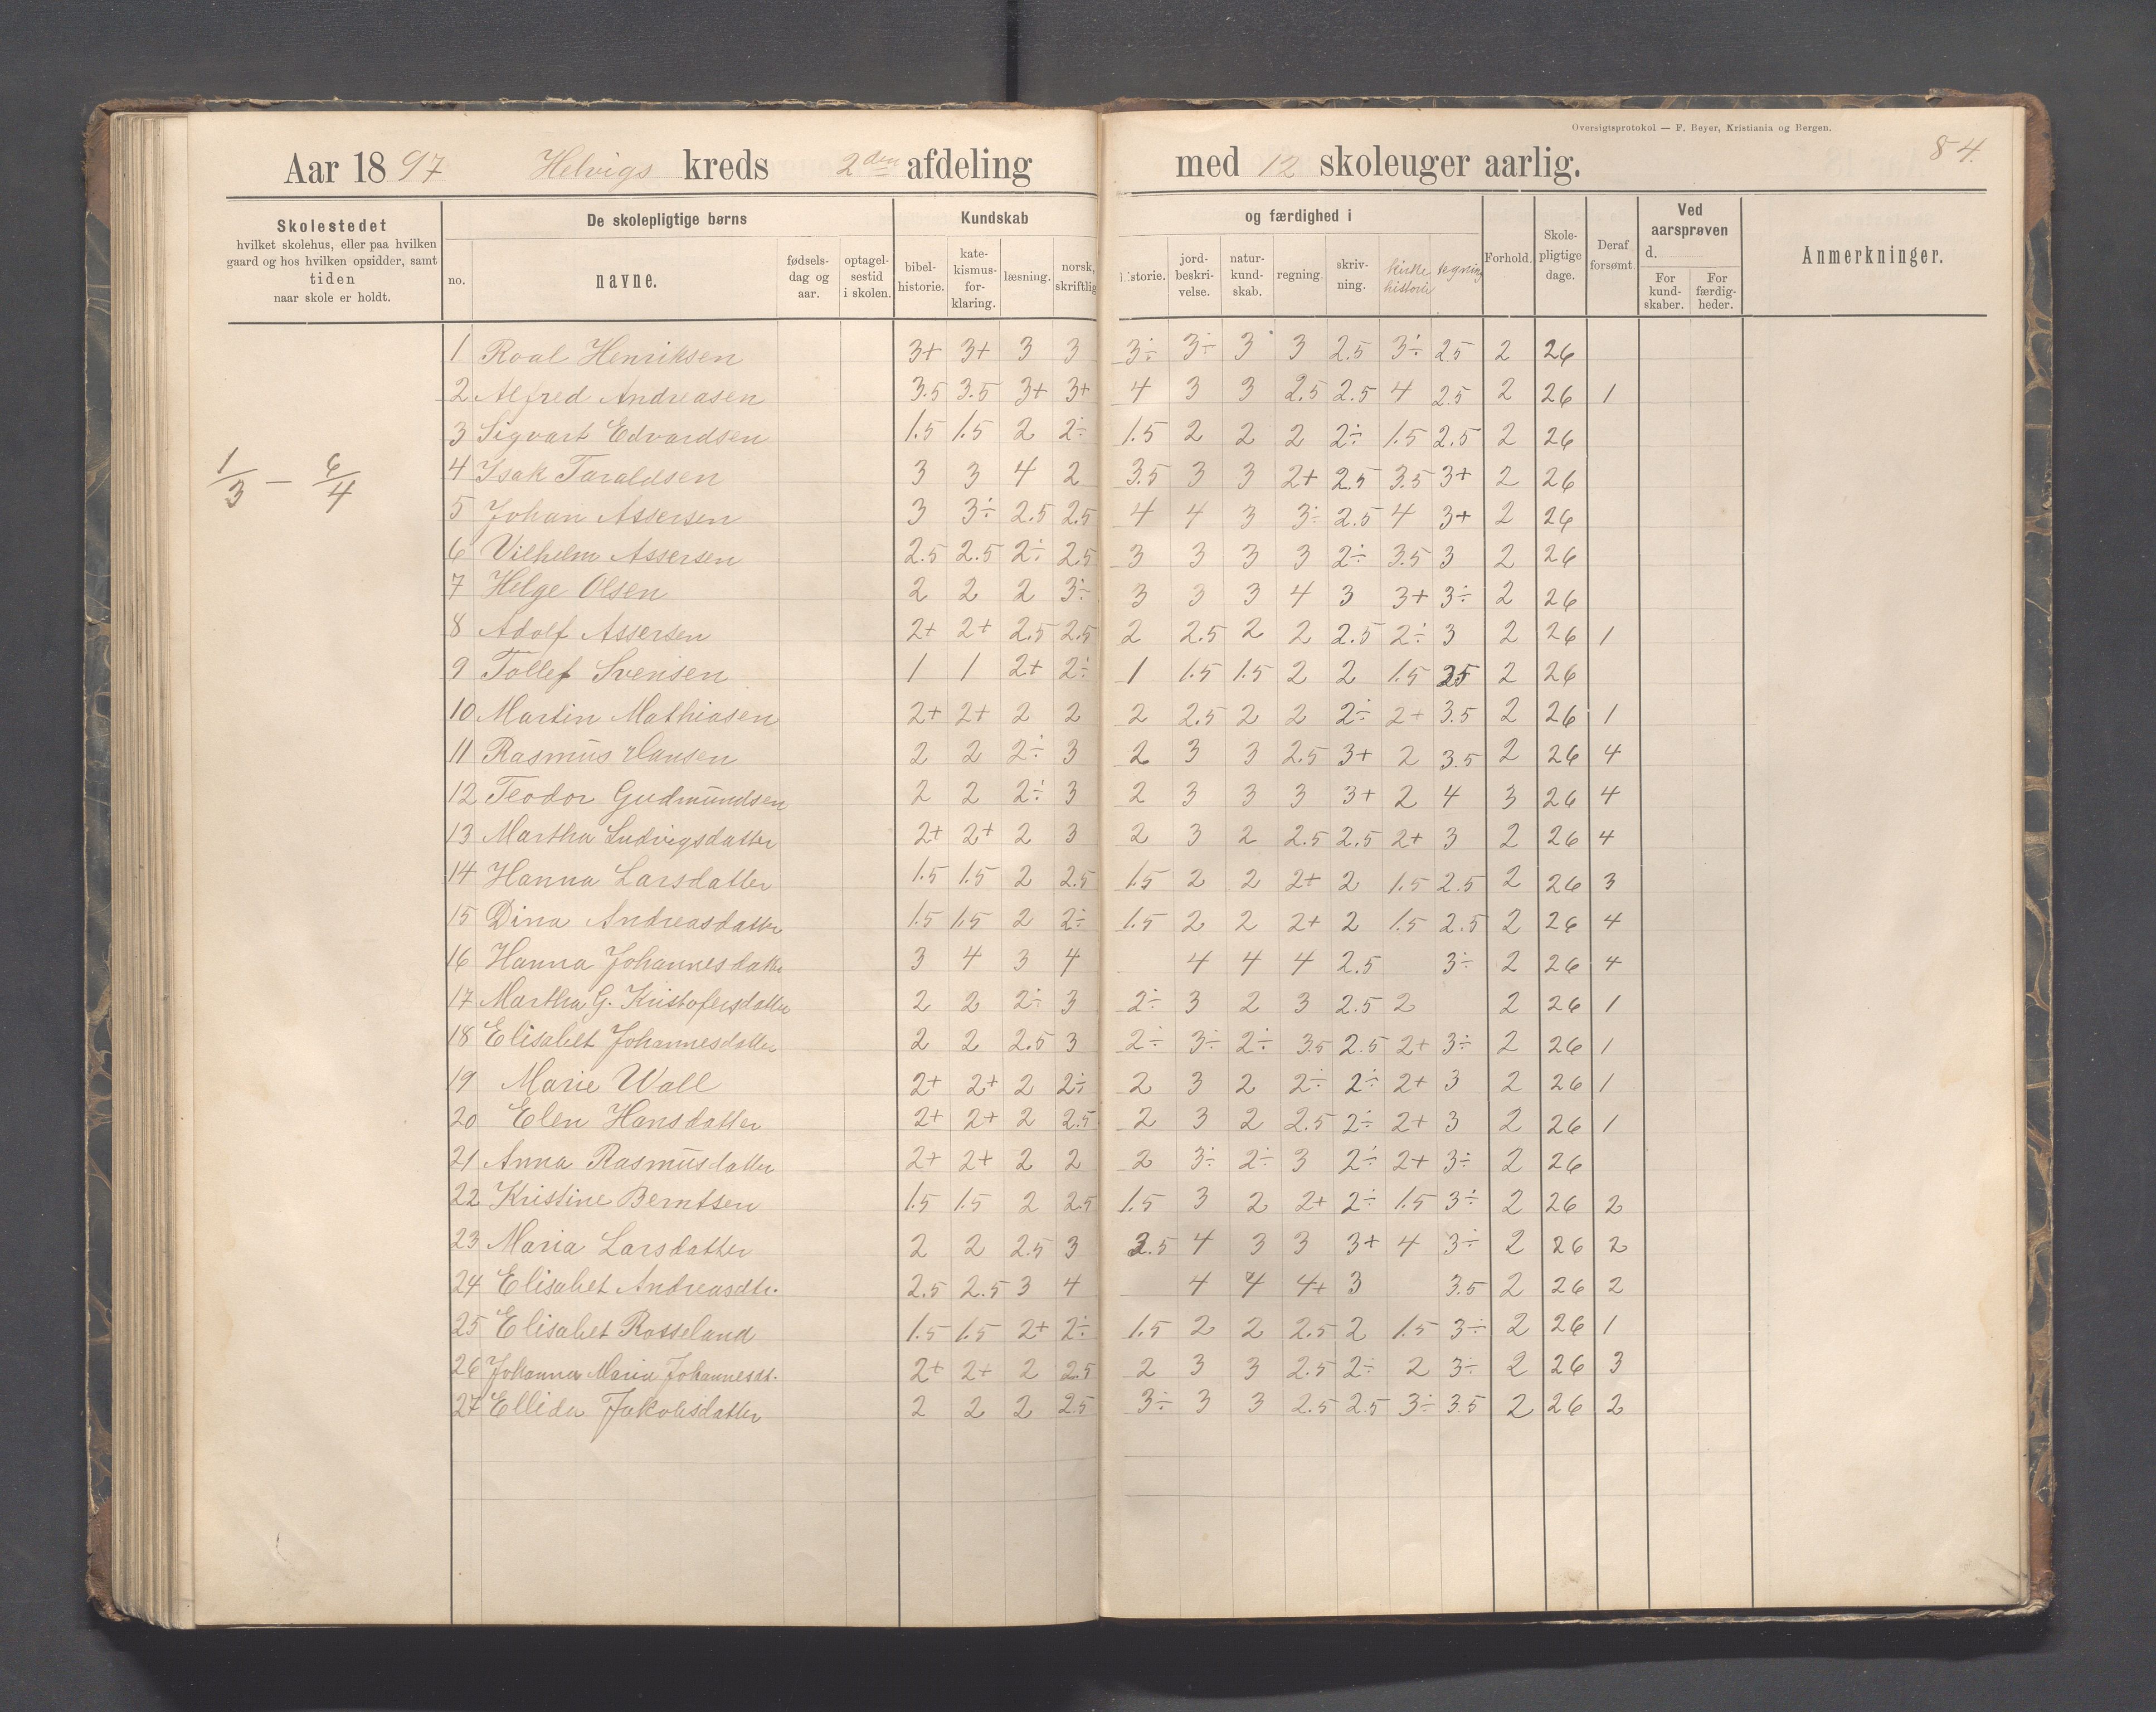 Oversigtsprotokol — F. Beyer, Kristiania og Bergen.
84.
Aar 1897 Helvigs kreds 2den afdeling med 12 skoleuger aarlig.
Skolestedet hvilket skolehus, eller paa hvilken gaard og hos hvilken opsidder, samt tiden naar skole er holdt.
De skolepligtige børns
no. navne. fødsels-dag og aar. optagel-sestid i skolen.
Kundskab og færdighed i
bibel-historie. kate-kismus-for-klaring. læsning. norsk, skriftlig historie. jord-beskri-velse. natur-kund-skab. regning. skriv-ning. kirke historie tegning
Forhold. Skole-pligtige dage. Deraf forsømt. Ved aarsprøven d. For kund-skaber. For færdig-heder. Anmerkninger.
1/3 — 6/4
1 Roal Henriksen 3+ 3+ 3 3 3÷ 3÷ 3 3 2.5 3÷ 2.5 2 26
2 Alfred Andreasen 3.5 3.5 3+ 3+ 4 3 3 2.5 2.5 4 2.5 2 26 1
3 Sigvart Edvardsen 1.5 1.5 2 2÷ 1.5 2 2 2 2÷ 1.5 2.5 2 26
4 Isak Taraldsen 3 3 4 2 3.5 3 3 2+ 2.5 3.5 3+ 2 26
5 Johan Assersen 3 3÷ 2.5 2.5 4 4 3 3÷ 2.5 4 3+ 2 26
6 Vilhelm Assersen 2.5 2.5 2÷ 2.5 3 3 3 3 2÷ 3.5 3 2 26
7 Helge Olsen 2 2 2 3÷ 3 3 3 4 3 3+ 3÷ 2 26
8 Adolf Assersen 2+ 2+ 2.5 2.5 2 2.5 2 2 2.5 2÷ 3 2 26 1
9 Tollef Svensen 1 1 2+ 2÷ 1 1.5 1.5 2 2 1.5 2.5 2 26
10 Martin Mathiasen 2+ 2+ 2 2 2 2.5 2 2 2÷ 2+ 3.5 2 26 1
11 Rasmus Hansen 2 2 2÷ 3 2 3 3 2.5 3+ 2 3.5 2 26 4
12 Teodor Gudmundsen 2 2 2÷ 3 2 3 3 3 3+ 2 4 3 26 4
13 Martha Ludvigsdatter 2+ 2+ 2 3 2 3 2 2.5 2.5 2+ 3 2 26 4
14 Hanna Larsdatter 1.5 1.5 2 2.5 1.5 2 2 2+ 2 1.5 2.5 2 26 3
15 Dina Andreasdatter 1.5 1.5 2 2÷ 1.5 2 2 2+ 2 1.5 2.5 2 26 4
16 Hanna Johannesdatter 3 4 3 4 4 4 4 2.5 3÷ 2 26 4
17 Martha G. Kristofersdatter 2 2 2÷ 3 2÷ 3 2 3 2.5 2 2 26 1
18 Elisabet Johannesdatter 2 2 2.5 3 2÷ 3÷ 2÷ 3.5 2.5 2+ 3÷ 2 26 1
19 Marie Wall 2+ 2+ 2 2÷ 2 3 2 2÷ 2÷ 2+ 3 2 26 1
20 Elen Hansdatter 2+ 2+ 2 2.5 2 3 2 2.5 2÷ 2+ 3 2 26 1
21 Anna Rasmusdatter 2+ 2+ 2 2 2 3÷ 2÷ 3 2÷ 2+ 3÷ 2 26
22 Kristine Berntsen 1.5 1.5 2 2.5 1.5 3 2 2+ 2÷ 1.5 3÷ 2 26 2
23 Maria Larsdatter 2 2 2.5 3 3.5 4 3 3 3+ 4 3÷ 2 26 2
24 Elisabet Andreasdtr. 2.5 2.5 3 4 4 4 4+ 3 3.5 2 26 2
25 Elisabet Rosseland 1.5 1.5 2+ 2÷ 1.5 2 2 2.5 2 1.5 3÷ 2 26 1
26 Johanna Maria Johannesdt. 2+ 2+ 2 2.5 2 3 3 2.5 2÷ 2 3÷ 2 26 3
27 Ellida Jakobsdatter 2 2 2 2.5 3÷ 3 3 2.5 2.5 3÷ 3.5 2 26 2